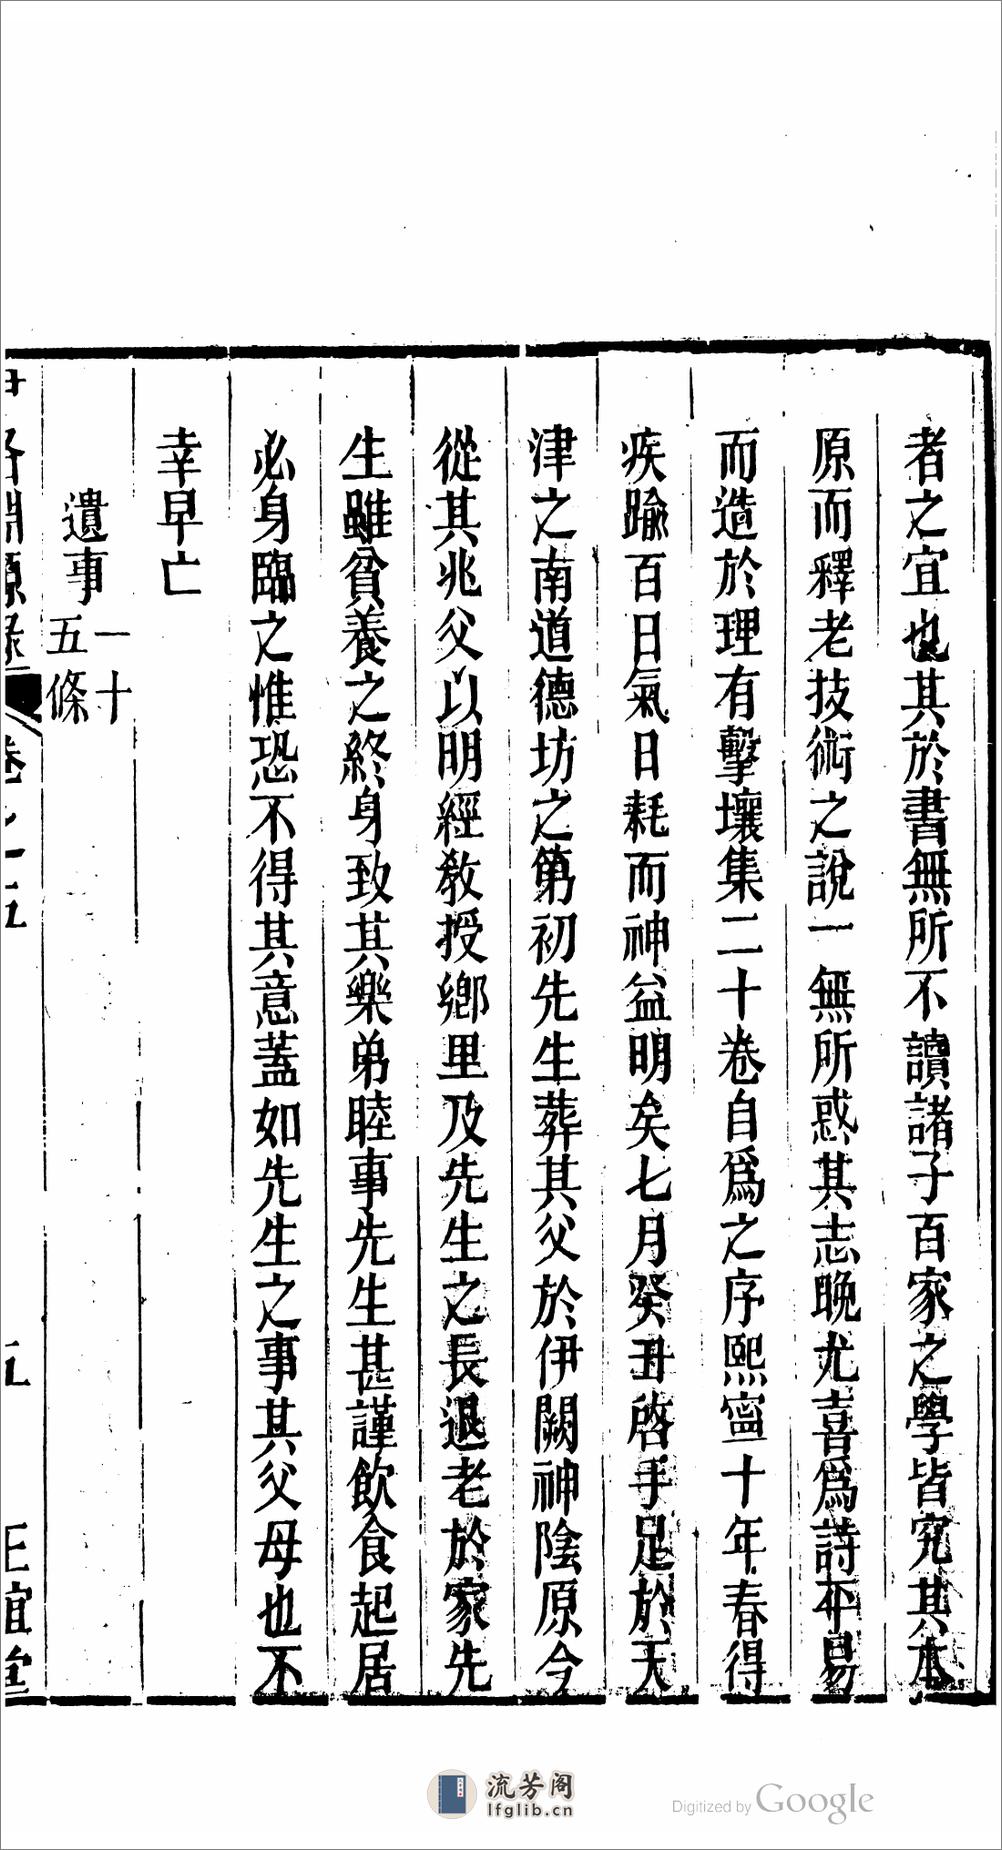 者之宜也其於書無所不讀諸子百家之學皆究其本
原而釋老技術之說一無所惑其志晚尤喜爲詩平易
而造於理有擊壤集二十卷自爲之序熙寧十年春得
疾踰百日氣日耗而神益明矣七月癸丑啓手足於天
津之南道德坊之第初先生葬其父於伊闕神陰原今
從其兆父以明經教授鄉里及先生之長退老於家先
生雖貧養之終身致其樂弟睦事先生甚謹飲食起居
必身臨之惟恐不得其意蓋如先生之事其父母也不
幸早亡
遺事一十五條
伊洛淵源錄 卷之五 五 正誼堂
流芳阁
lfglib.cn
Digitized by Google